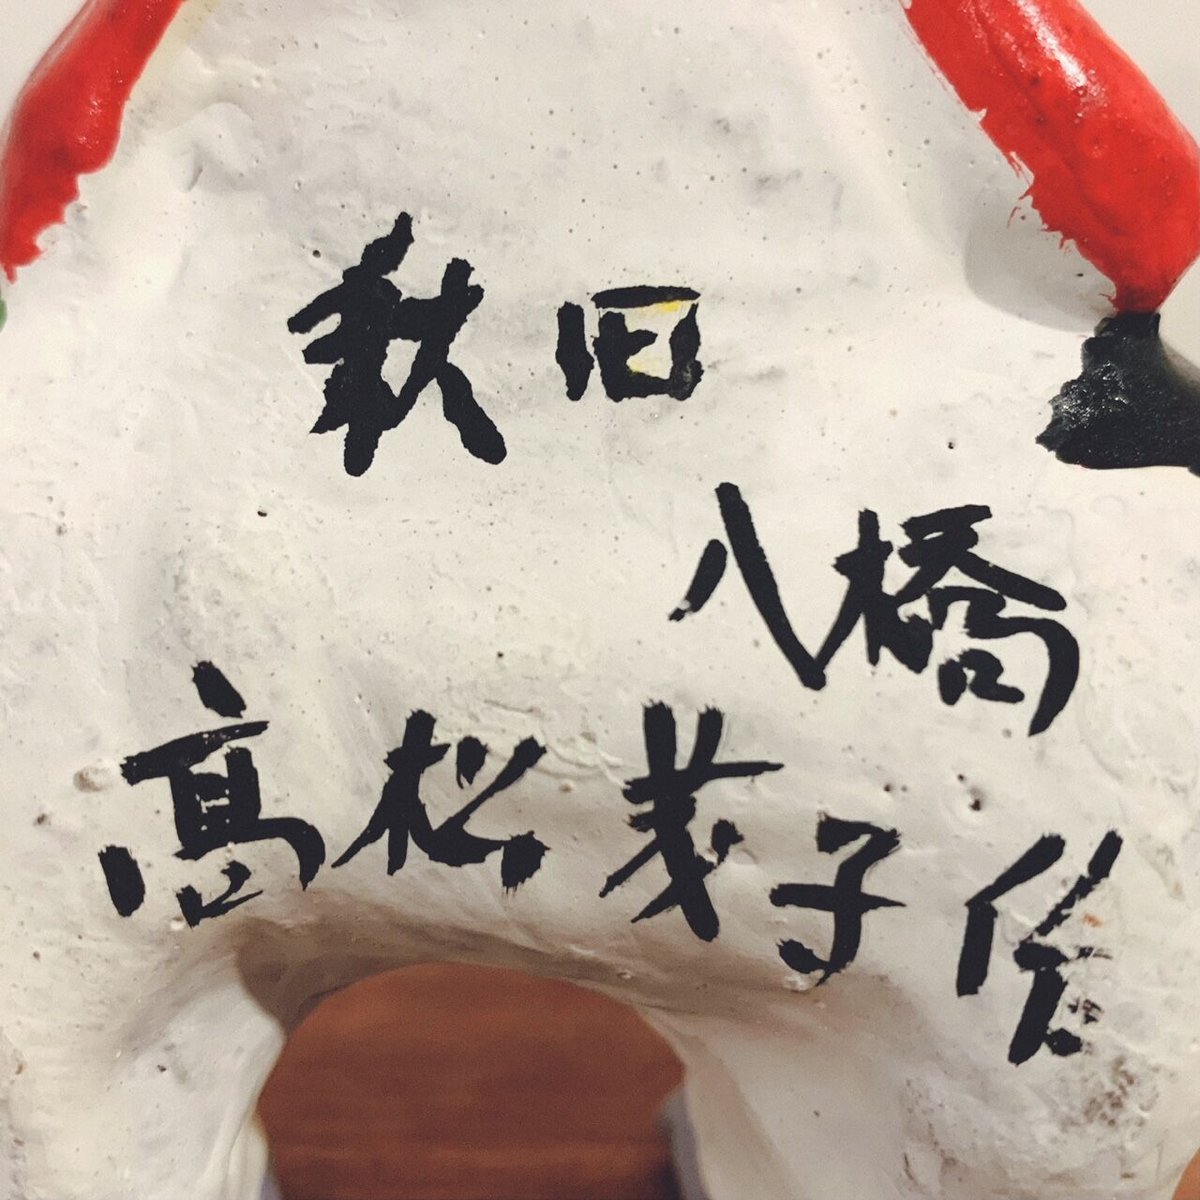 秋田
八橋
高松茂子作